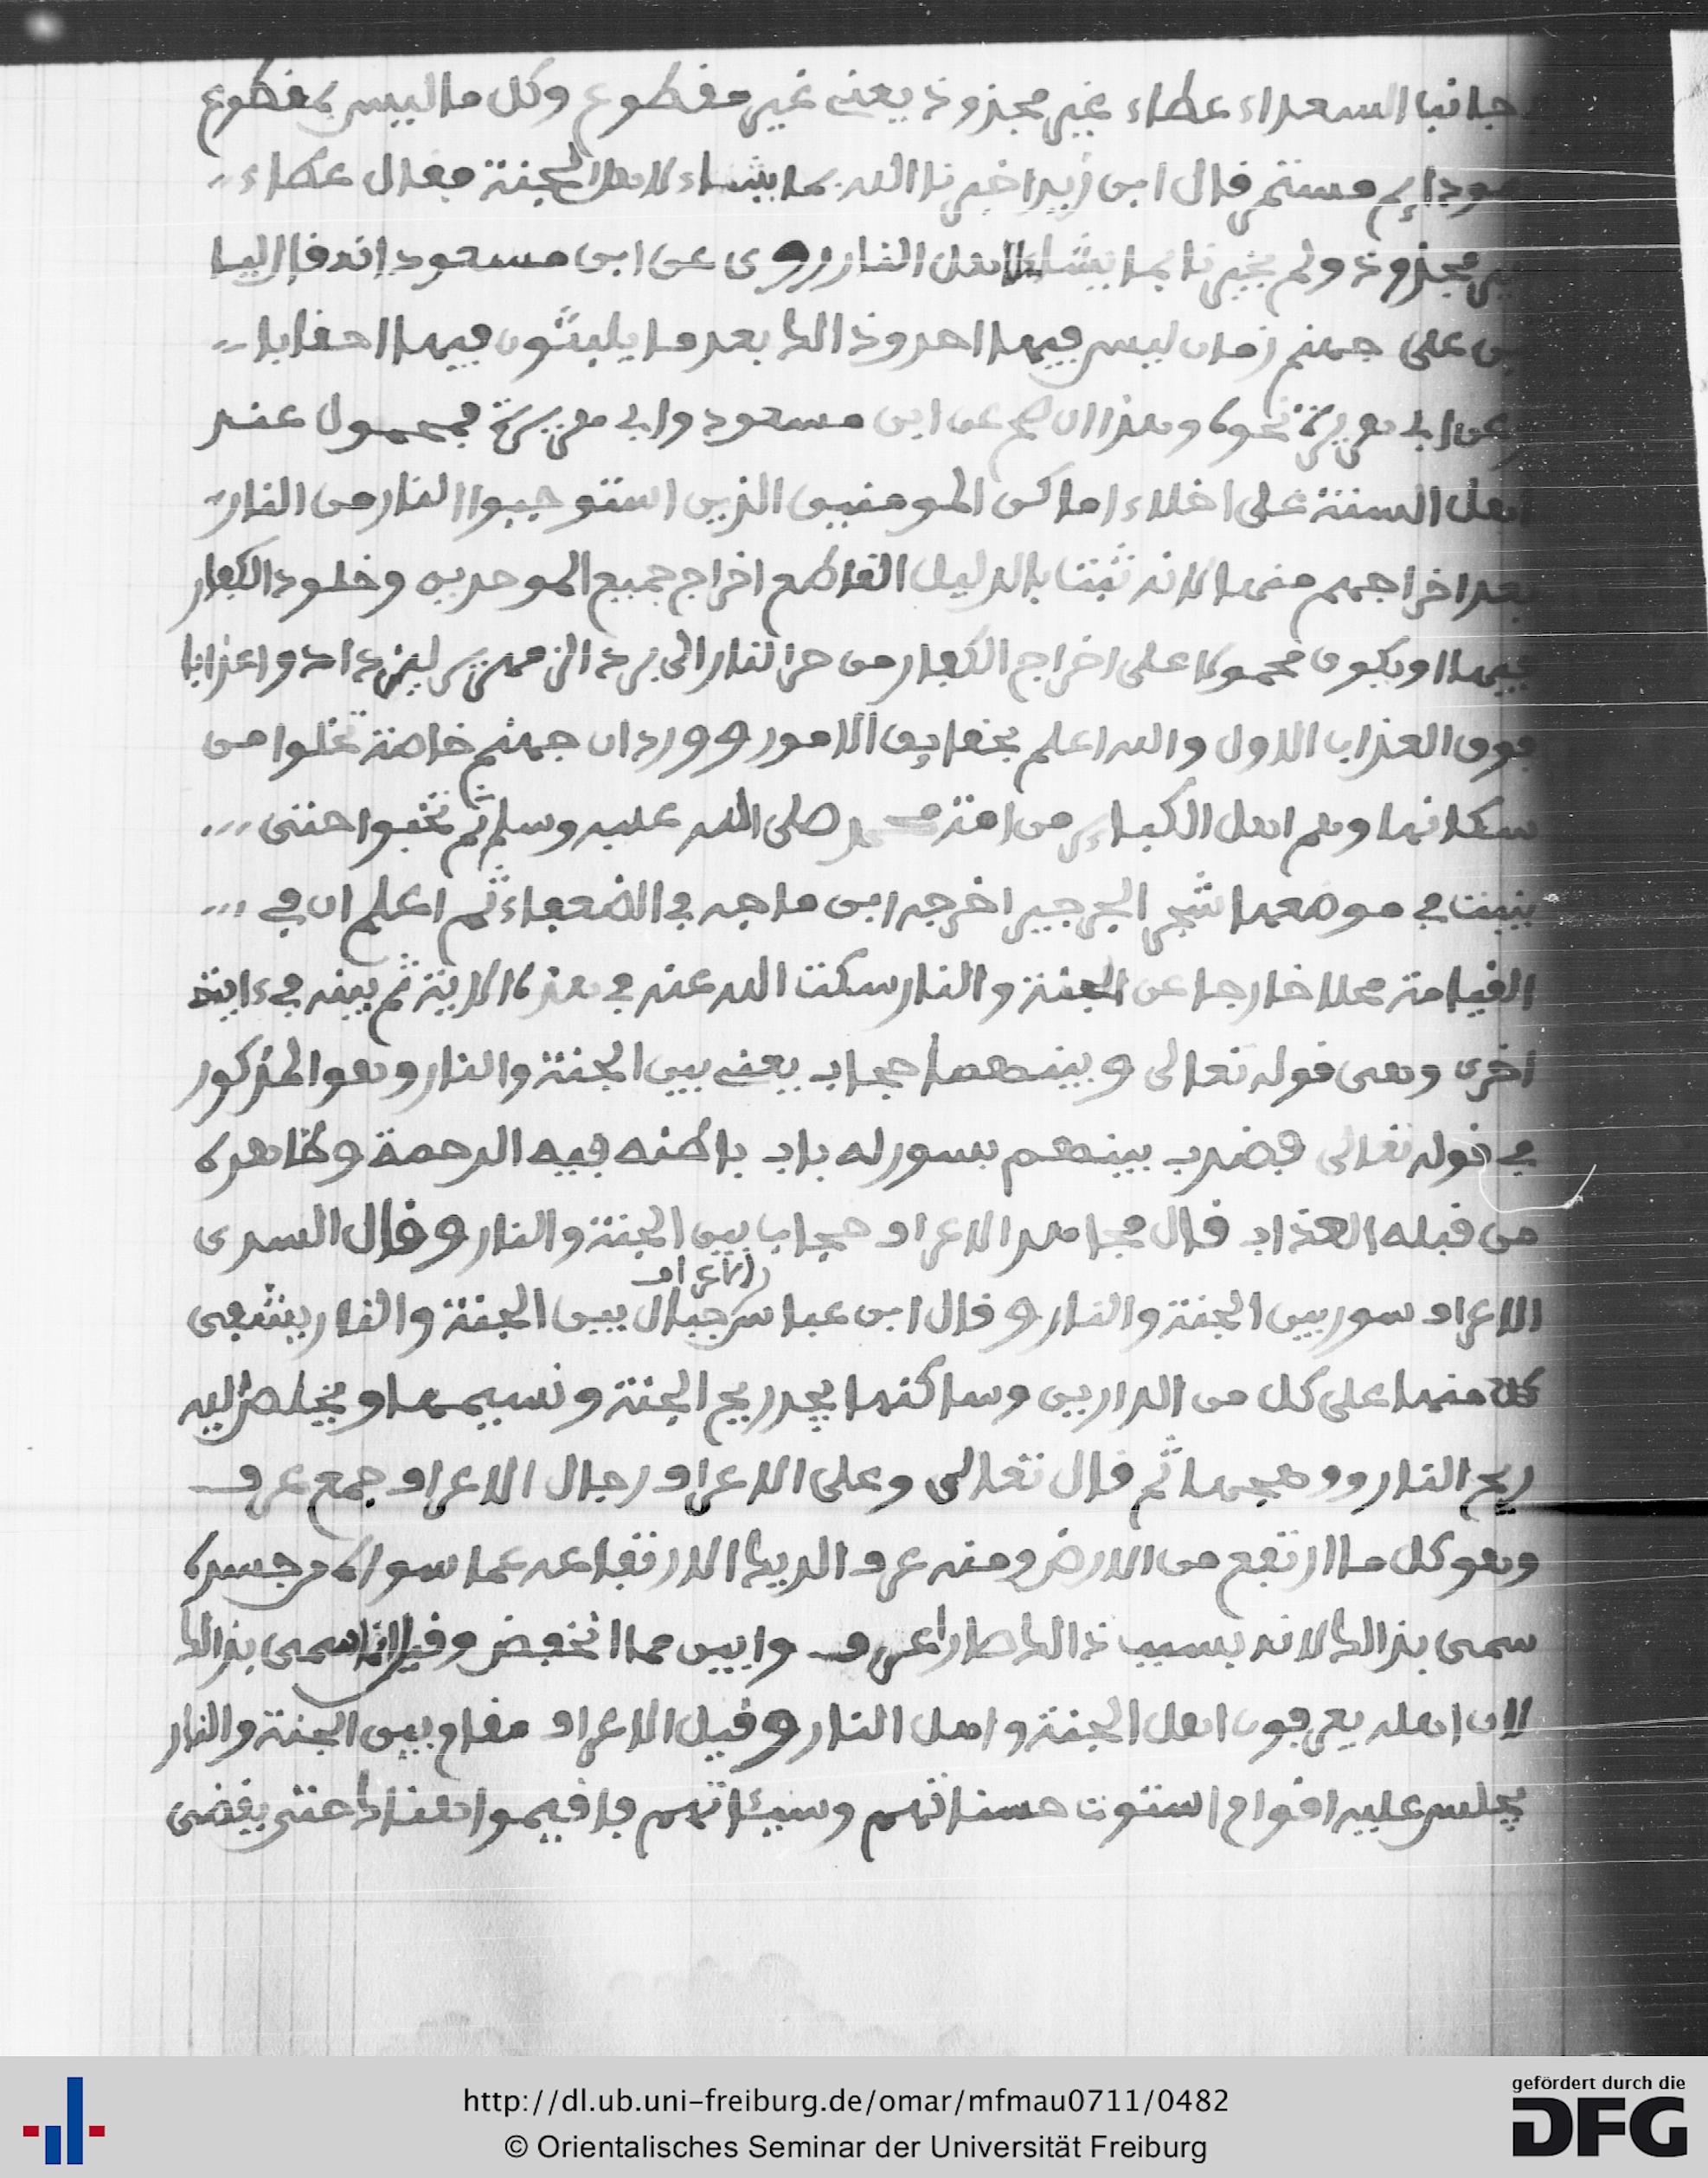 جانبا السعداء عطاء غير مجذوذ يعنى غير مقطوع وكل ما ليس بمقطوع
دايم مستمر قال ابن زيد اخبرنا الله بما يشاء لاهل الجنة فقال عطاء
غير مجذوذ ولم يخبرنا بما يشاء لاهل النار وروى عن ابن مسعود انه قال ليا
تين على جهنم زمان ليس فيها احد وذالك بعد ما يلبثون فيها احقابا
وعن ابى هريرة نحوه وهذا ان صح عن ابن مسعود وابى هريرة فمحمول عند
اهل السنة على اخلاء اماكن المومنين الذين استوجبوا النار من النار
بعد اخراجهم منها لانه ثبت بالدليل القاطع اخراج جميع الموحدين وخلود الكفار
فيها او يكون محمولا على اخراج الكفار من حر النار الى برد الزمهرير ليزدادوا عذابا
فوق العذاب الاول والله اعلم بحقايق الامور وورد ان جهنم خاصة تخلوا من
سكانها وهم اهل الكباير من امة محمد صلى الله عليه وسلم ثم تخبوا حتى
ينبت في موضعها شجر الجرجير اخرجه ابن ماجه في الضعفاء ثم اعلم ان في
القيامة محلا خارجا عن الجنة والنار سكت الله عنه في هذه الاية ثم بينه في ءاية
اخرى وهى قوله تعالى وبينهما حجاب يعنى بين الجنة والنار وهو المذكور
في قوله تعالى فضرب بينهم بسور له باب باطنه فيه الرحمة وظاهره
من قبله العذاب قال مجاهد الاعراف حجاب بين الجنة والنار وقال السدى
الاعراف سور بين الجنة والنار وقال ابن عباس الاعراف جبال بين الجنة والنار يشفى
كل منها على كل من الدارين وساكنها يجد ريح الجنة ونسيمها ويخلص اليه
ريح النار ووهجها ثم قال تعالى وعلى الاعراف رجال الاعراف جمع عرف
وهو كل ما ارتفع من الارض ومنه عرف الديك لارتفاعه عما سواه من جسده
سمى بذالك لانه بسبب ذالك صار اعرف وابين مما انخفض وقيل انما سمى بذالك
لان اهله يعرفون اهل الجنة واهل النار وقيل الاعراف مقام بين الجنة والنار
يجلس عليه اقوام استوت حسناتهم وسيئاتهم فاقيموا هناك حتى يقضى
http://dl.ub.uni-freiburg.de/omar/mfmau0711/0482
© Orientalisches Seminar der Universität Freiburg
gefördert durch die
DFG